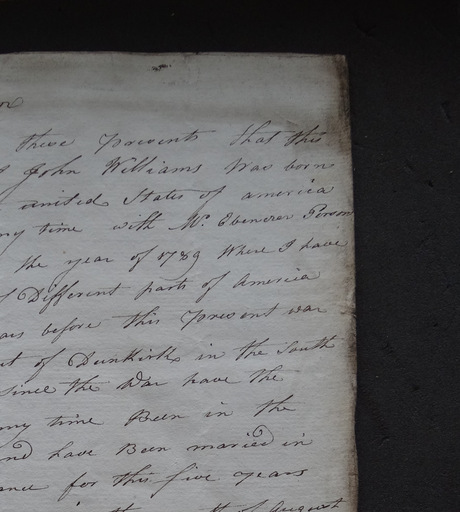 these presents that this
John Williams Was born
united States of america
my time with Mr. Ebenezer Person
the year of 1789 Where I have
Different parts of America
before this present war
of Dunkirk in the South
since the War have the
my time Been in the
and have Been maried in
for this five years
of August